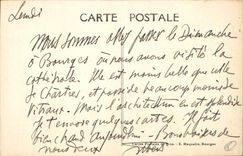 Lundi
CARTE POSTALE
Nous sommes allés passer le Dimanche
à Bourges où nous avons visité la
cathédrale. Elle est moins belle que celle
de Chartres, et possède beaucoup moins de
vitraux. Mais l'architecture en est splendide
Je t'envoie quelques cartes. Il fait
bien chaud aujourd'hui - Bons baisers de
nous deux